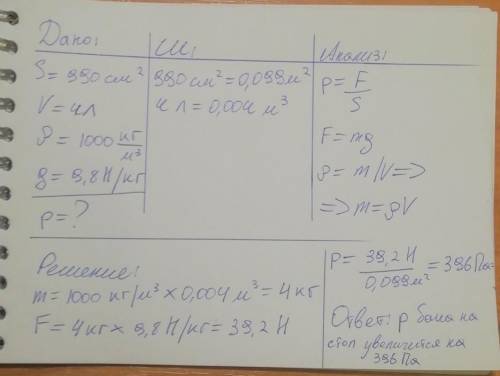 Дано:
S = 990 см²
V = 4л
ρ = 1000 кг/м³
g = 9,8 Н/кг
p = ?
СИ:
990 см² = 0,099 м²
4 л = 0,004 м³
Анализ:
p = F/S
F = mg
ρ = m/V =>
=> m = ρV
Решение:
m = 1000 кг/м³ x 0,004 м³ = 4 кг
F = 4 кг x 9,8 Н/кг = 39,2 Н
p = 39,2 Н / 0,099 м² = 396 Па
Ответ: p бака на
стол увеличится на
396 Па